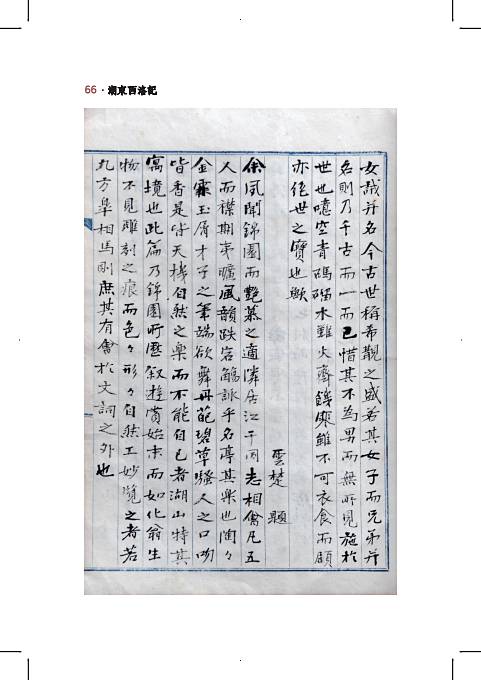 66 · 湖東西洛記
女哉并名今古世稱希覯之盛若其女子而兄弟并
名則乃千古而一而已惜其不為男而無所見施於
世也噫空青碼碯木難火齊饑寒雖不可衣食而顧
亦絶世之寶也歟
雲楚 題
余夙聞錦園而艷慕之適隣居江干同志相會凡五
人而襟期夷曠風韻跌宕觴詠乎名亭其樂也陶々
金霏玉屑才子之筆端欲舞丹葩碧草騷人之口吻
皆香是皆天機自然之樂而不能自已者湖山特其
寓境也此篇乃錦園所歷叙遊賞始末而如化翁生
物不見雕刻之痕而色々形々自然工妙覽之者若
九方臯相馬則庶其有會於文詞之外也